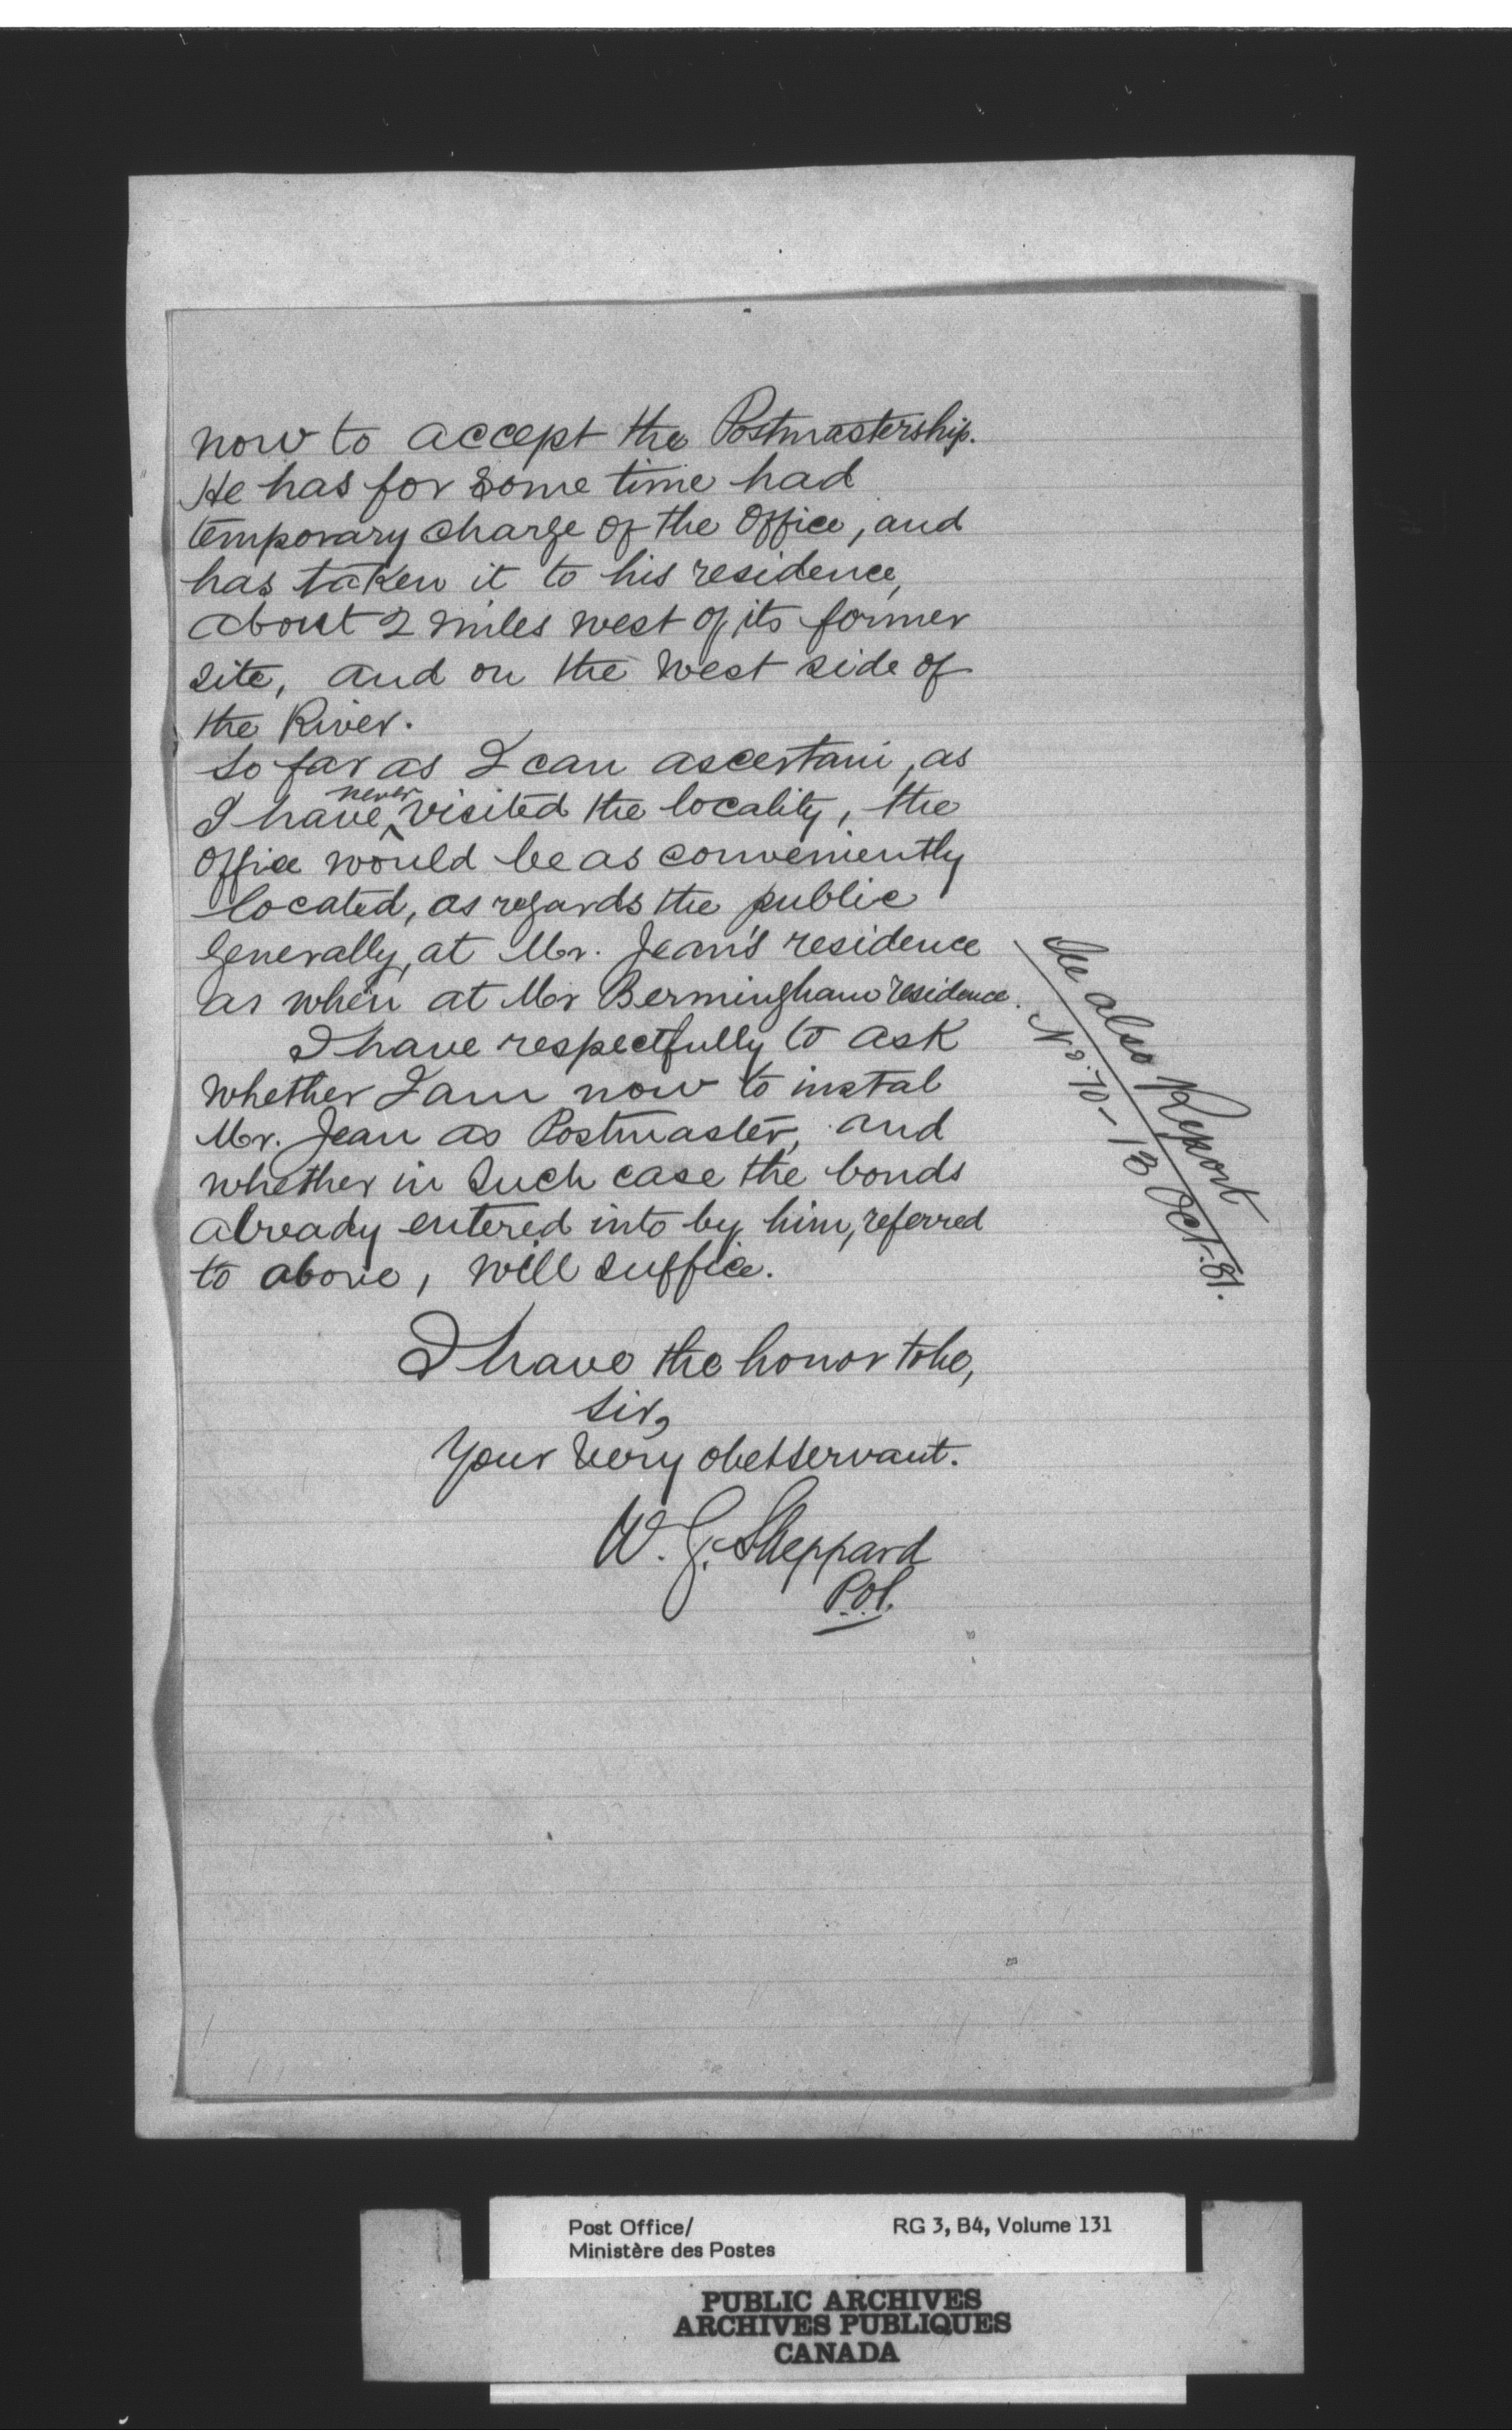 now to accept the Postmastership.
He has for some time had
temporary charge of the Office, and
has taken it to his residence,
about 2 miles west of its former
site, and on the west side of
the River.
So far as I can ascertain, as
I have never visited the locality, the
Office would be as conveniently
located, as regards the public
generally, at Mr. Jean's residence
as when at Mr Bermingham residence.
I have respectfully to ask
whether I am now to instal
Mr. Jean as Postmaster, and
whether in such case the bonds
already entered into by him, referred
to above, will suffice.
I have the honor to be,
Sir,
Your very obet servant.
W. G. Sheppard
P.O.I.
See also Report
No. 70 - 13 Oct. 81.
Post Office/
Ministère des Postes
RG 3, B4, Volume 131
PUBLIC ARCHIVES
ARCHIVES PUBLIQUES
CANADA